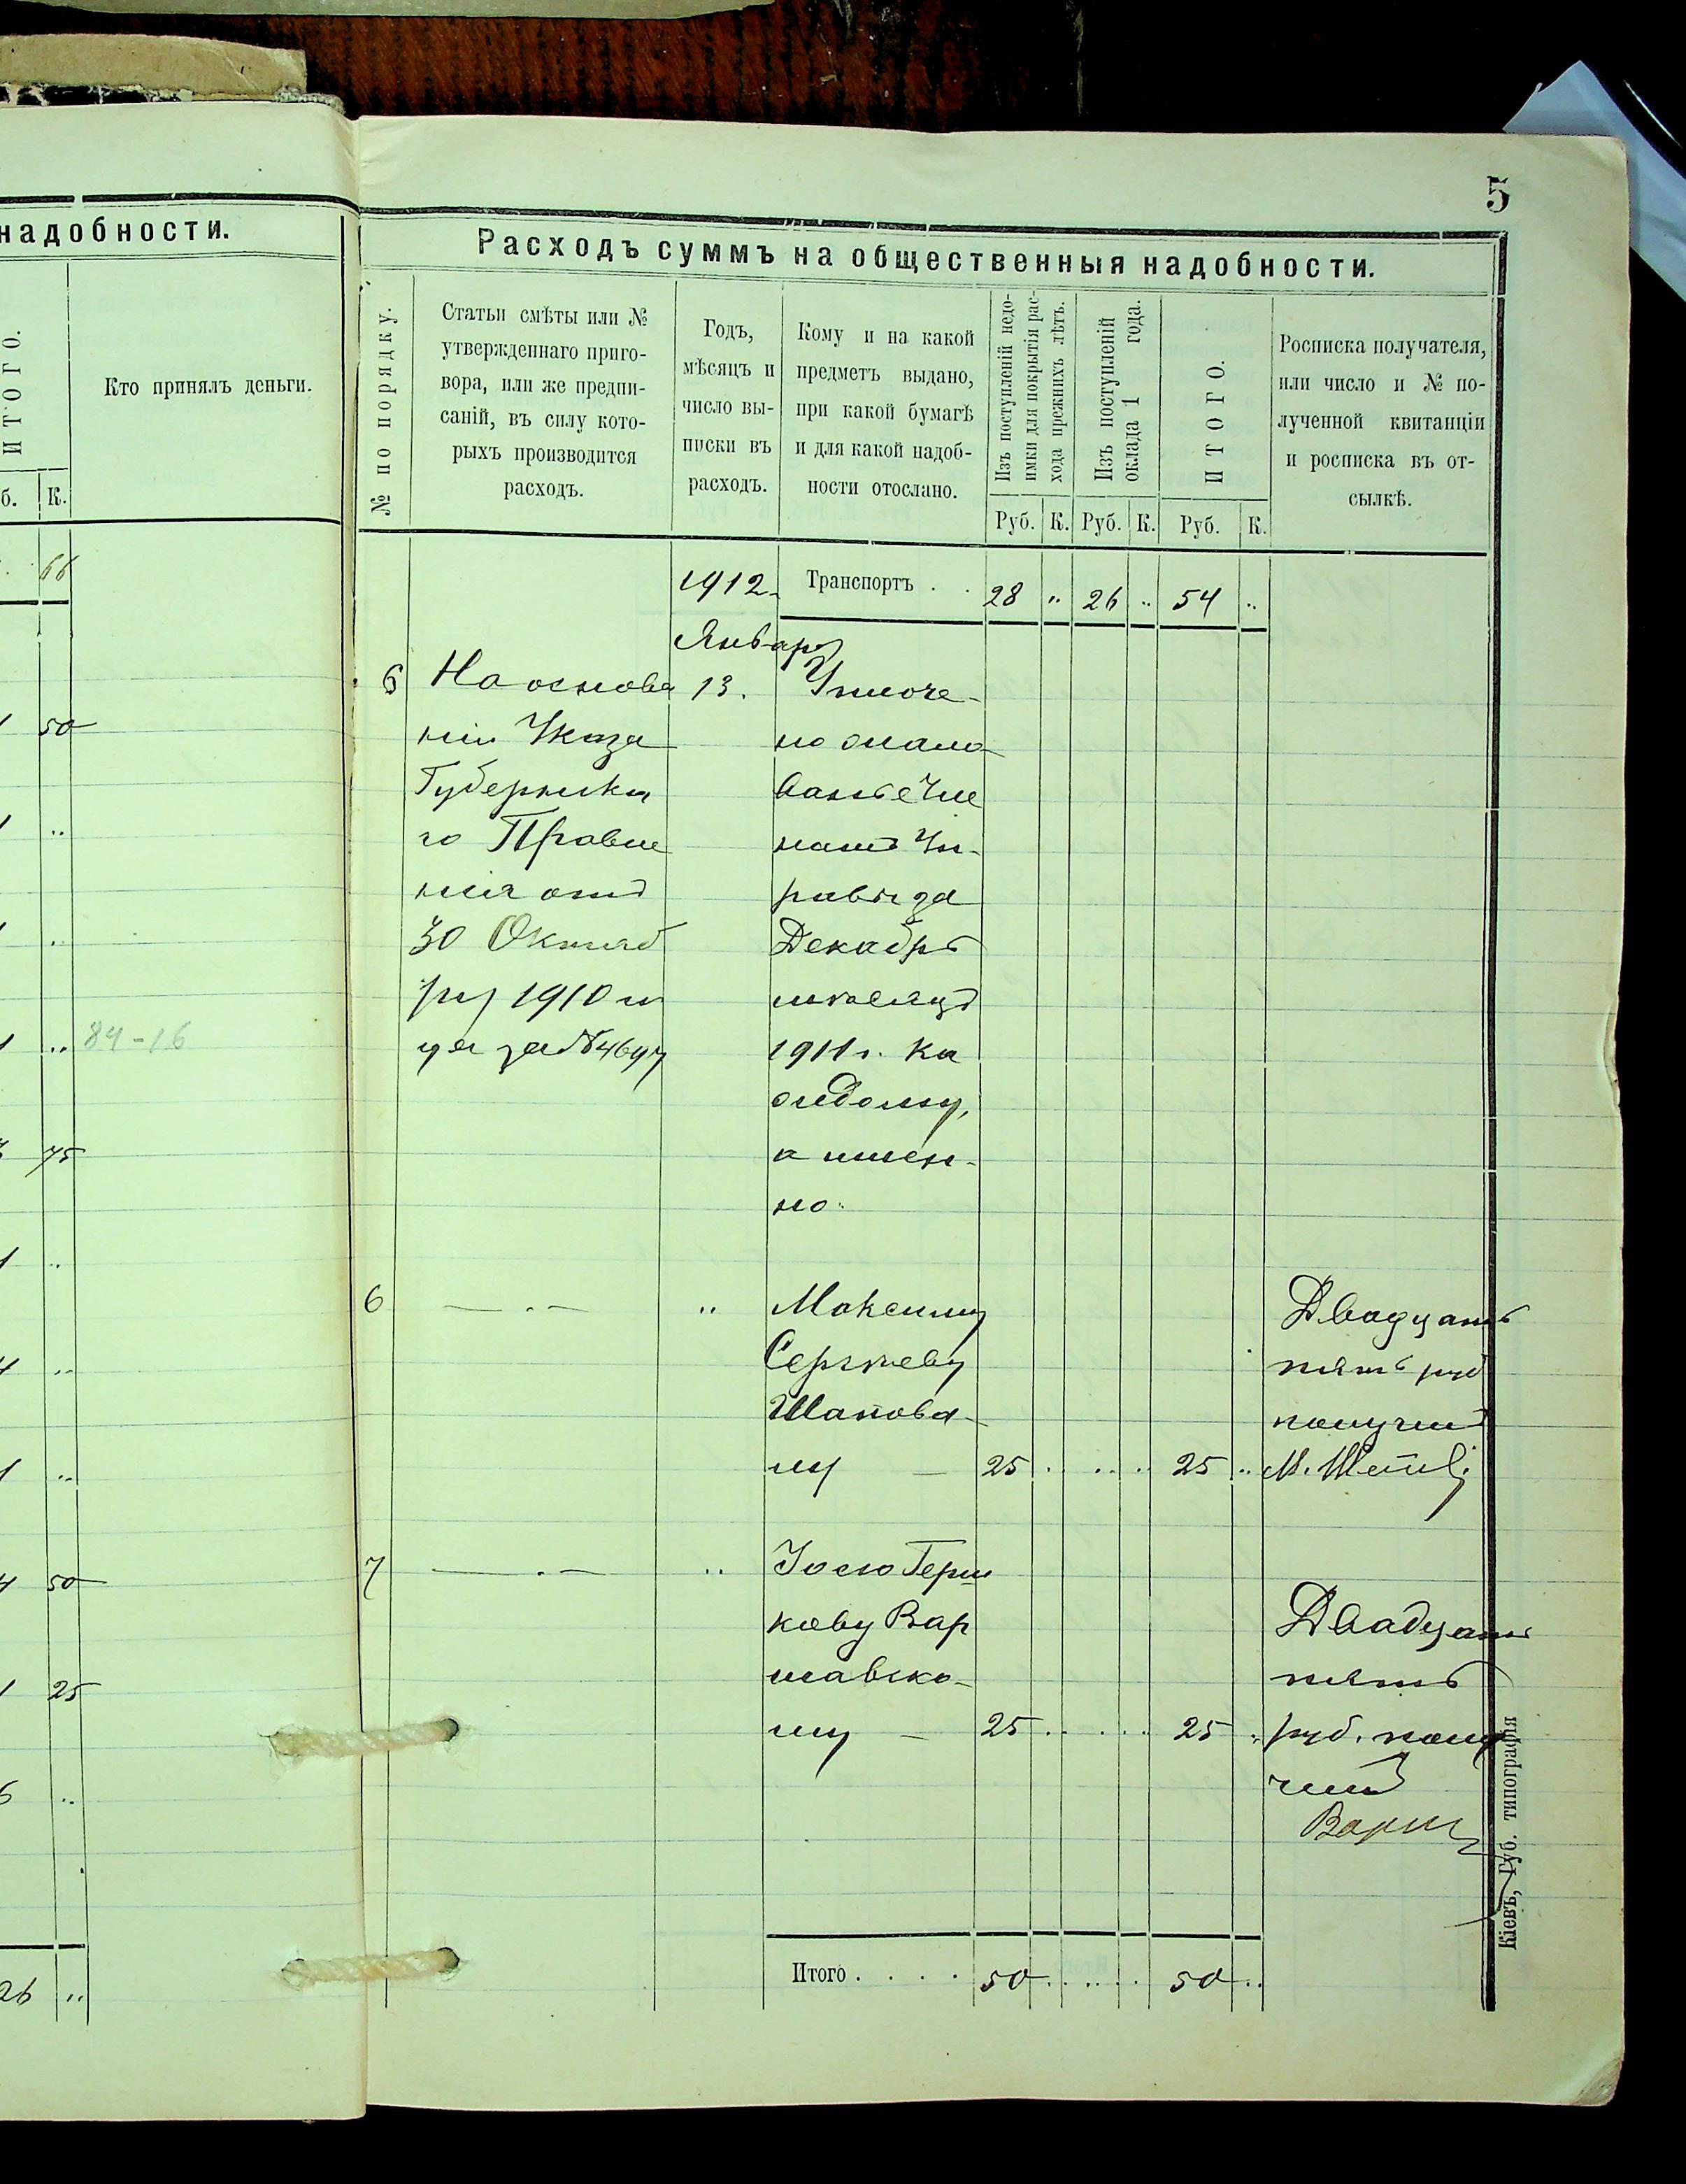 надобности.
ИТОГО.
Кто принялъ деньги.
б. К.
66
50
84-16
75
50
25
26
5
Расходъ суммъ на общественныя надобности.
№ по порядку.
Статьи смѣты или №
утвержденнаго приго-
вора, или же предпи-
саній, въ силу кото-
рыхъ производится
расходъ.
Годъ,
мѣсяцъ и
число вы-
писки въ
расходъ.
Кому и на какой
предметъ выдано,
при какой бумагѣ
и для какой надоб-
ности отослано.
Изъ поступленій недо-
имки для покрытія рас-
хода прежнихъ лѣтъ.
Изъ поступленій
оклада 1 года.
ИТОГО.
Росписка получателя,
или число и № по-
лученной квитанціи
и росписка въ от-
сылкѣ.
Руб. К. Руб. К. Руб. К.
1912 Транспортъ . . 28 " 26 " 54 "
Января
На основа
ніи Указа
Губернска
го Правле
нія отъ
30 Октяб
ря 1910 го
да за №
13.
Уплоче-
но жало
ванье Чле
намъ Уп-
равы за
Декабрь
мѣсяцъ
1911 г. Ка
ждому,
а имен-
но:
6 — . — " Максиму
Сергѣеву
Шапова-
лу — 25 . .. . 25 ..
Двадцать
пять руб
получилъ
М.
7 — . — " Іосю Герш
кову Вар
шавско-
му — 25 . .. . 25 .
Двадцать
пять
руб. полу
чилъ
Варш
Итого . . . . 50 . .. . 50 ..
Кіевъ, Губ. типографія